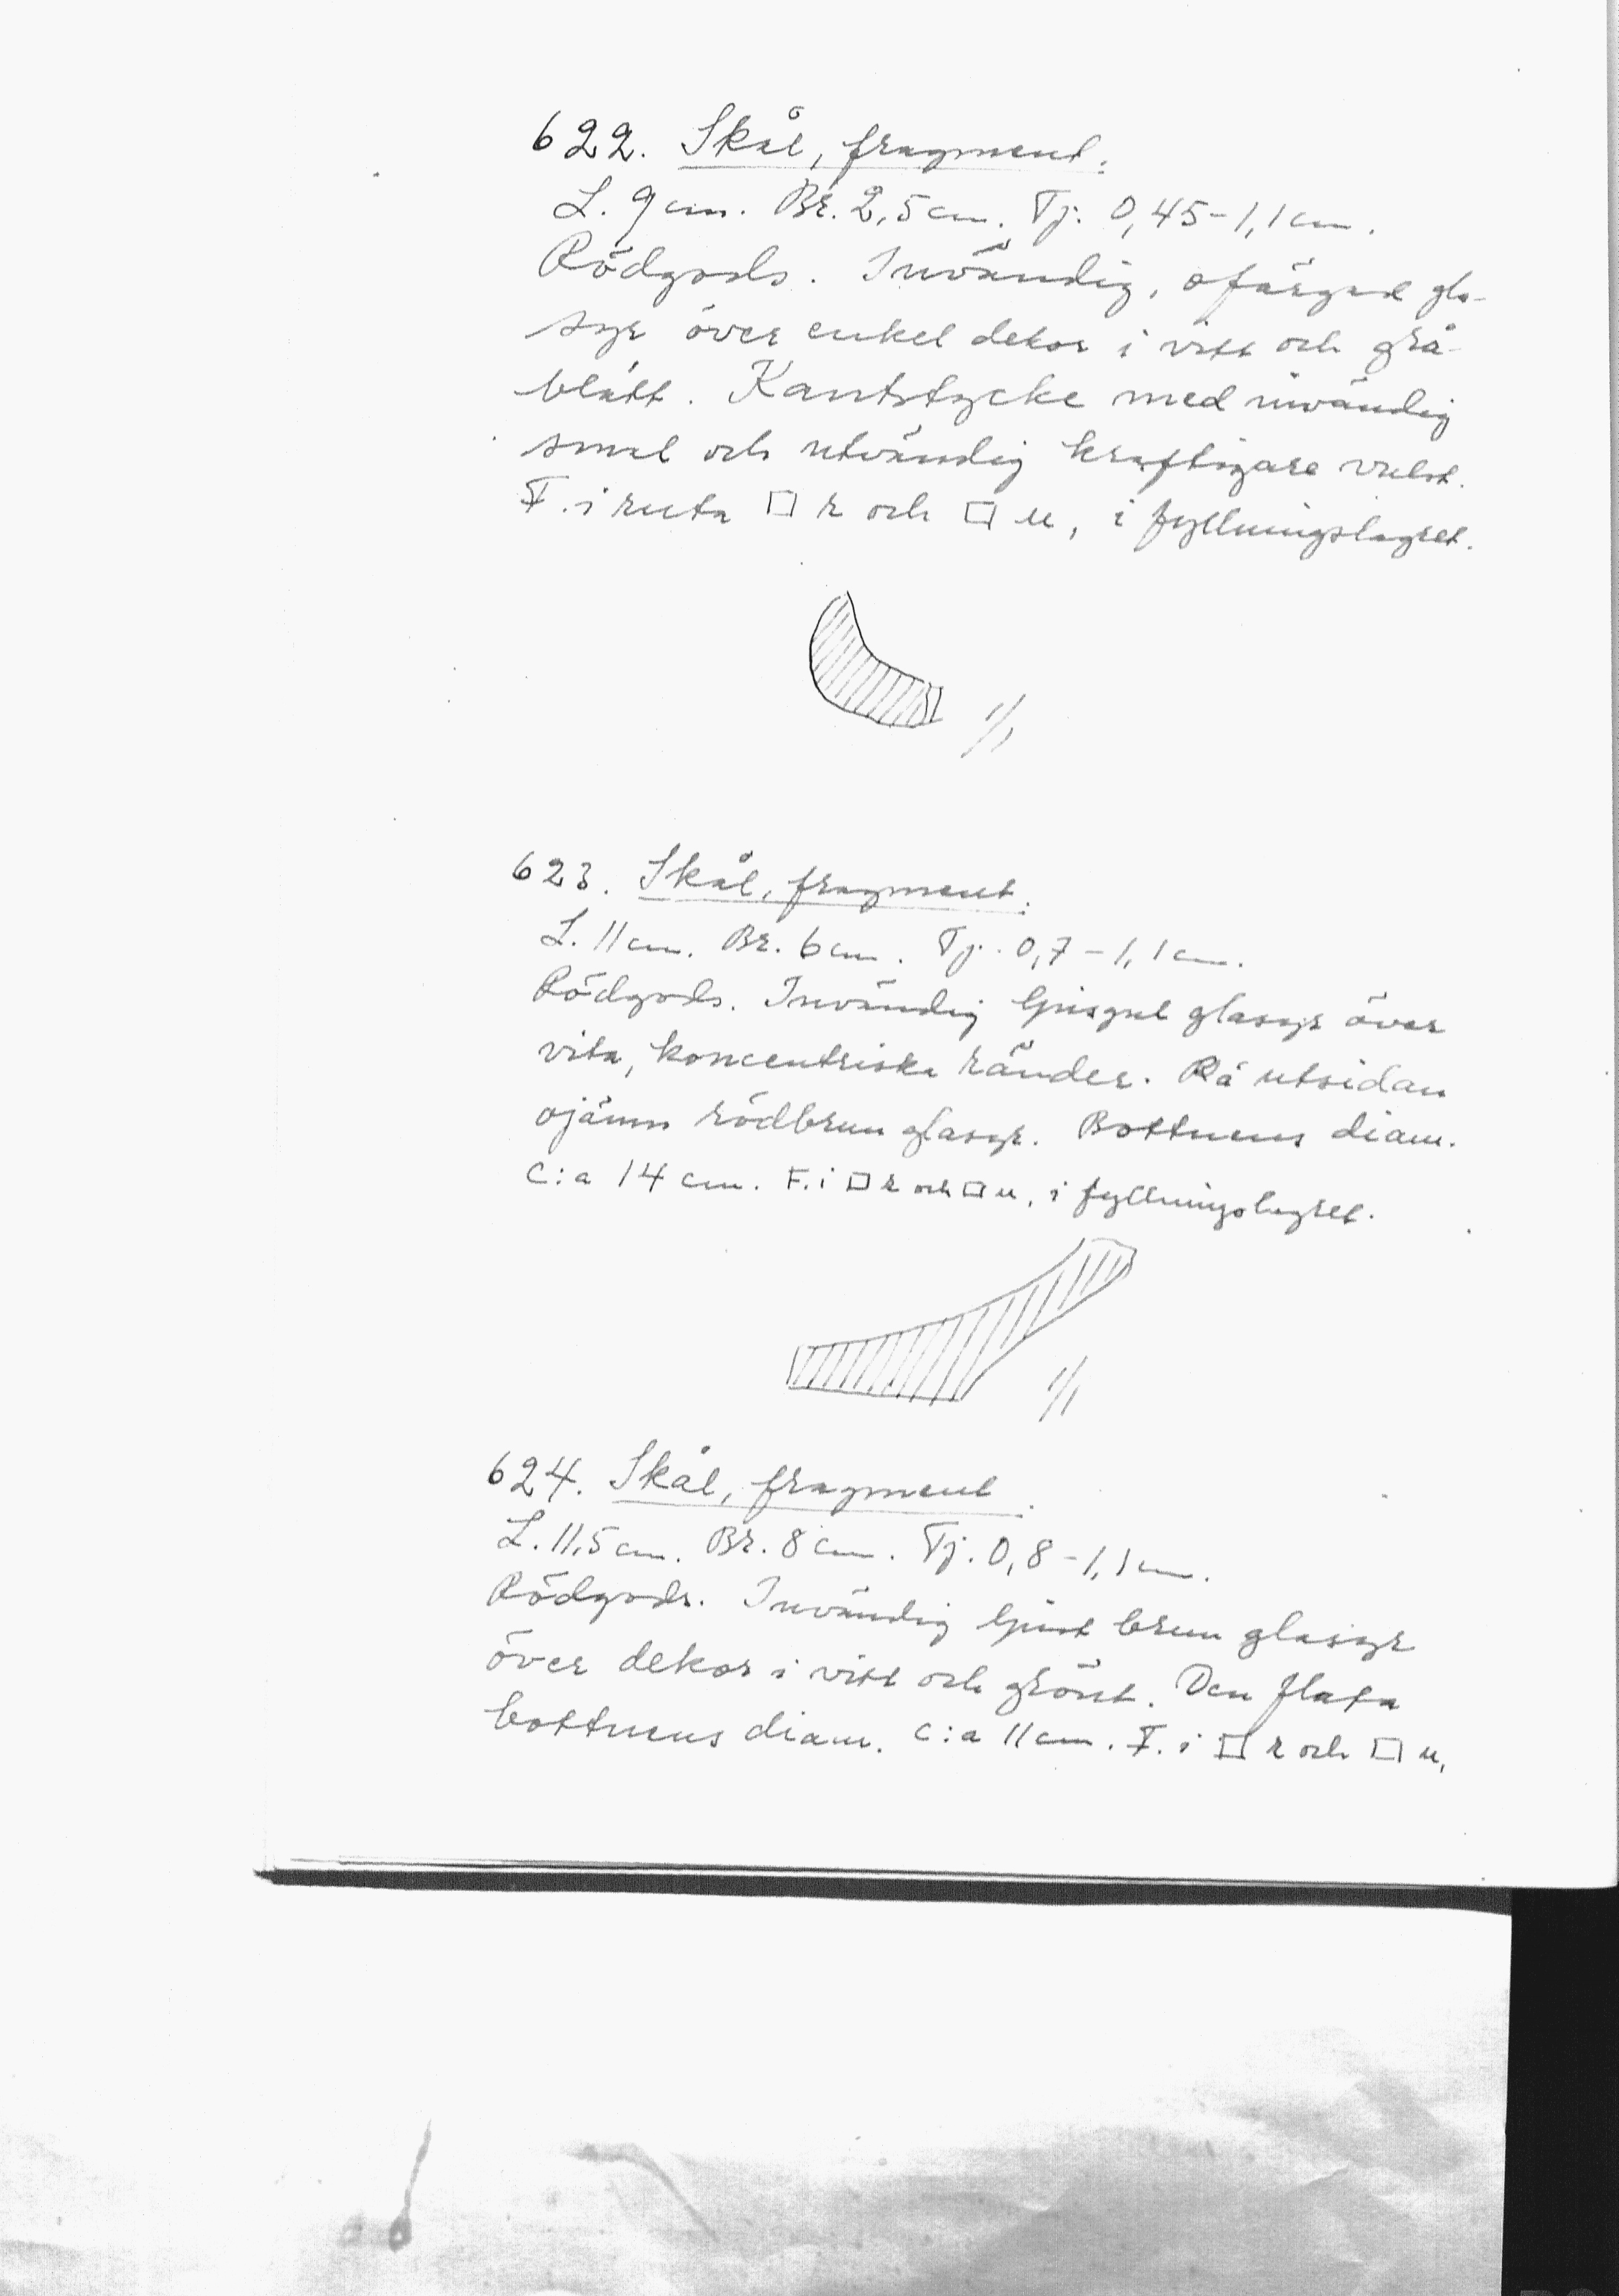 622. Skål, fragment.
L. 9 cm. Br. 2,5 cm. Tj. 0,45-1,1 cm.
Rödgods. Invändig, ofärgad gla-
syr över enkel dekor i vitt och grå-
blått. Kantstycke med invändig
smal och utvändig kraftigare vulst.
F. i ruta □ r och □ u, i fyllningslagret.
1/1
623. Skål, fragment.
L. 11 cm. Br. 6 cm. Tj. 0,7-1,1 cm.
Rödgods. Invändig ljusgul glasyr över
vita, koncentriska ränder. På utsidan
ojämn rödbrun glasyr. Bottnens diam.
c:a 14 cm. F. i □ r och □ u, i fyllningslagret.
1/1
624. Skål, fragment.
L. 11,5 cm. Br. 8 cm. Tj. 0,8-1,1 cm.
Rödgods. Invändig ljust brun glasyr
över dekor i vitt och grönt. Den flata
bottnens diam. c:a 11 cm. F. i □ r och □ u,